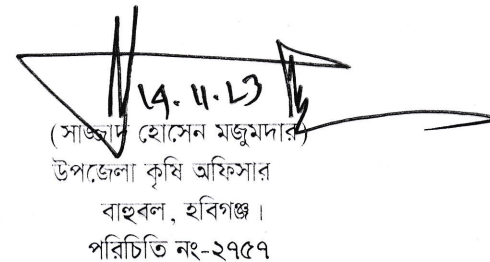 ১৯.১১.২৩
(সাজ্জাদ হোসেন মজুমদার)
উপজেলা কৃষি অফিসার
বাহুবল, হবিগঞ্জ।
পরিচিতি নং-২৭৫৭